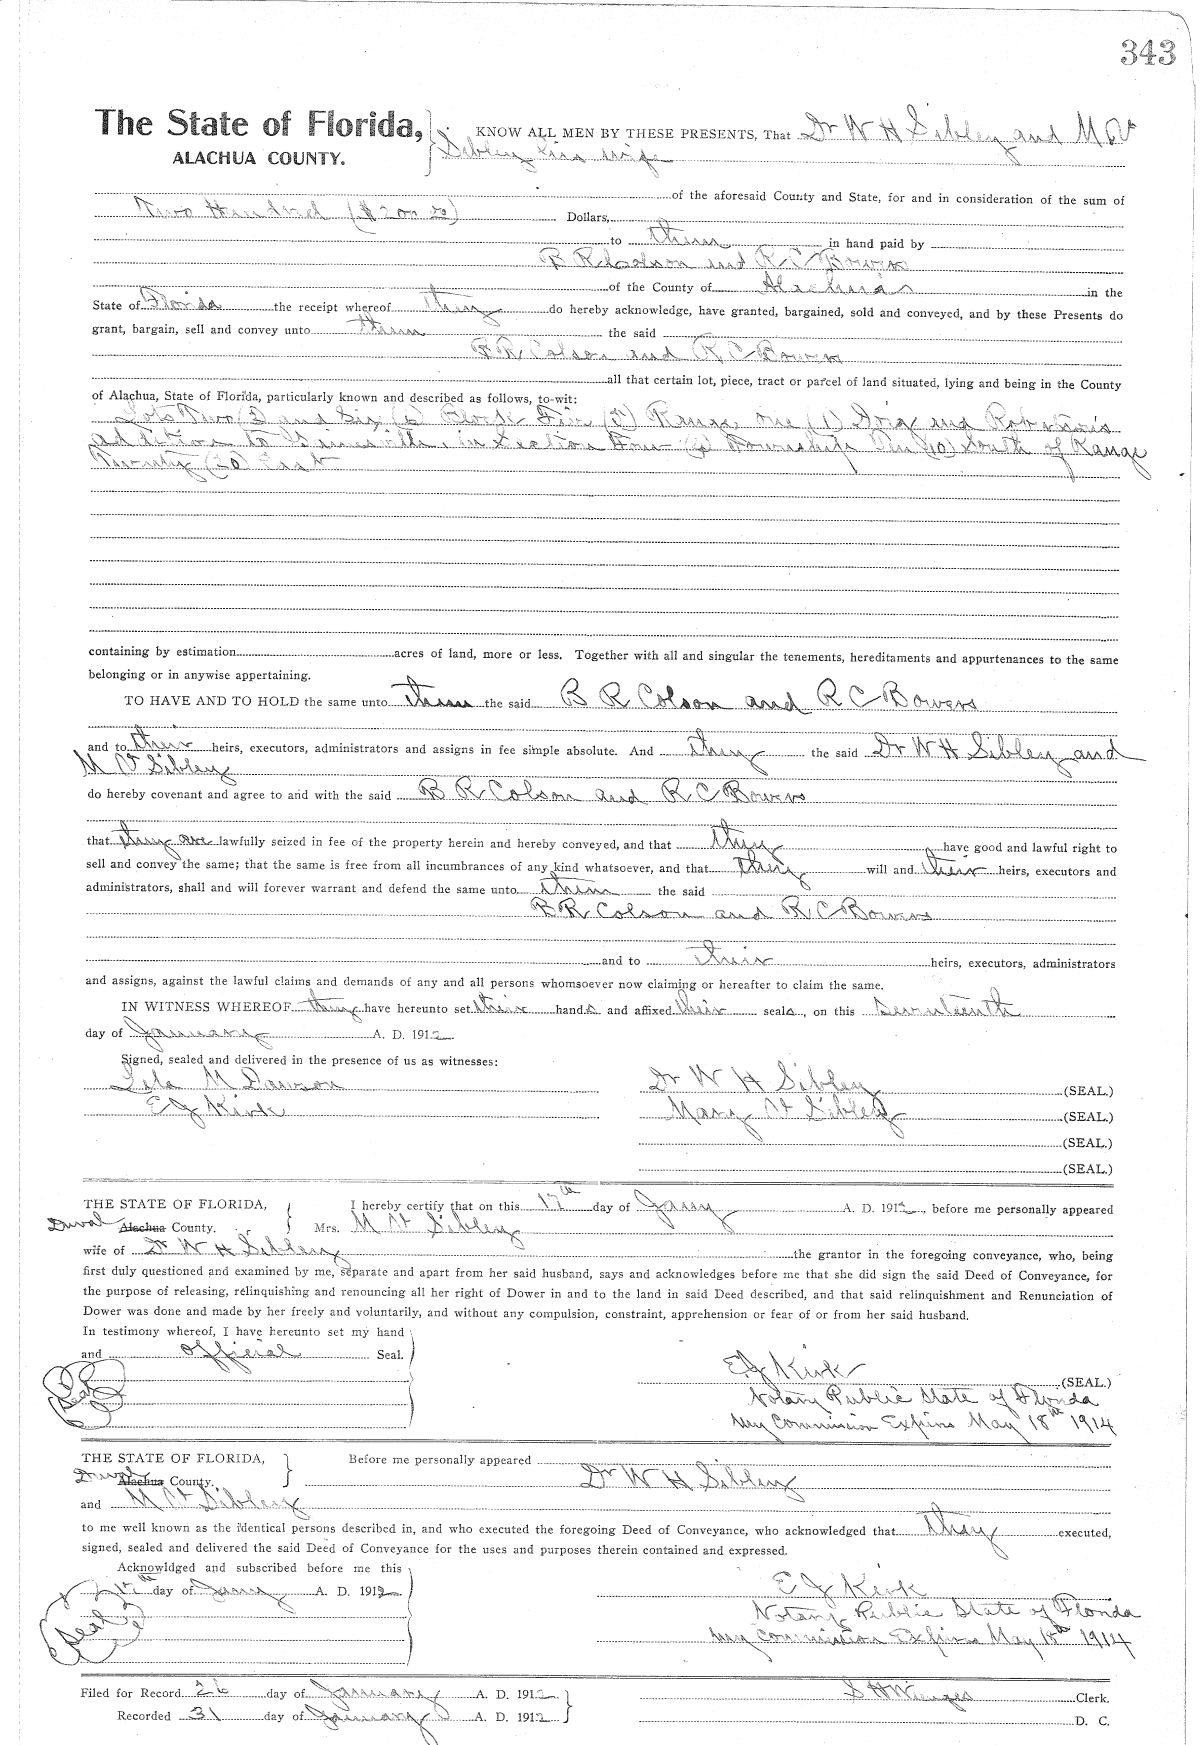 343
The State of Florida, KNOW ALL MEN BY THESE PRESENTS, That Dr W H Sibley and M
ALACHUA COUNTY. Sibley his wife
of the aforesaid County and State, for and in consideration of the sum of
Two Hundred ($200 00) Dollars,
to them in hand paid by
B R Colson and R C Bowers
of the County of Alachua in the
State of Florida the receipt whereof they do hereby acknowledge, have granted, bargained, sold and conveyed, and by these Presents do
grant, bargain, sell and convey unto them the said
B R Colson and R C Bowers
all that certain lot, piece, tract or parcel of land situated, lying and being in the County
of Alachua, State of Florida, particularly known and described as follows, to-wit:
Lots Two (2) and Six (6) Block Five (5) Range one (1) Doig and Robertsons
addition to Gainesville, in Section Four (4) Township Ten (10) South of Range
Twenty (20) East
containing by estimation acres of land, more or less. Together with all and singular the tenements, hereditaments and appurtenances to the same
belonging or in anywise appertaining.
TO HAVE AND TO HOLD the same unto them the said B R Colson and R C Bowers
and to their heirs, executors, administrators and assigns in fee simple absolute. And they the said Dr W H Sibley and
M Sibley
do hereby covenant and agree to and with the said B R Colson and R C Bowers
that they are lawfully seized in fee of the property herein and hereby conveyed, and that they have good and lawful right to
sell and convey the same; that the same is free from all incumbrances of any kind whatsoever, and that they will and their heirs, executors and
administrators, shall and will forever warrant and defend the same unto them the said
B R Colson and R C Bowers
and to their heirs, executors, administrators
and assigns, against the lawful claims and demands of any and all persons whomsoever now claiming or hereafter to claim the same.
IN WITNESS WHEREOF they have hereunto set their hands and affixed their seals, on this Seventeenth
day of January A. D. 1912
Signed, sealed and delivered in the presence of us as witnesses:
Lila M Dawson Dr W H Sibley (SEAL.)
E J Kirk Mary Sibley (SEAL.)
(SEAL.)
(SEAL.)
THE STATE OF FLORIDA, I hereby certify that on this 17th day of Jany A. D. 1912, before me personally appeared
Duval Alachua County. Mrs. M Sibley
wife of Dr W H Sibley the grantor in the foregoing conveyance, who, being
first duly questioned and examined by me, separate and apart from her said husband, says and acknowledges before me that she did sign the said Deed of Conveyance, for
the purpose of releasing, relinquishing and renouncing all her right of Dower in and to the land in said Deed described, and that said relinquishment and Renunciation of
Dower was done and made by her freely and voluntarily, and without any compulsion, constraint, apprehension or fear of or from her said husband.
In testimony whereof, I have hereunto set my hand
and official Seal.
E J Kirk (SEAL.)
Seal Notary Public State of Florida
My Commission Expires May 18th 1914
THE STATE OF FLORIDA, Before me personally appeared
Duval Alachua County. Dr W H Sibley
and M Sibley
to me well known as the identical persons described in, and who executed the foregoing Deed of Conveyance, who acknowledged that they executed,
signed, sealed and delivered the said Deed of Conveyance for the uses and purposes therein contained and expressed.
Acknowldged and subscribed before me this
17th day of Jany A. D. 1912 E J Kirk
Seal Notary Public State of Florida
My Commission Expires May 18th 1914
Filed for Record 26 day of January A. D. 1912 S H Wienges Clerk.
Recorded 31 day of January A. D. 1912 D. C.